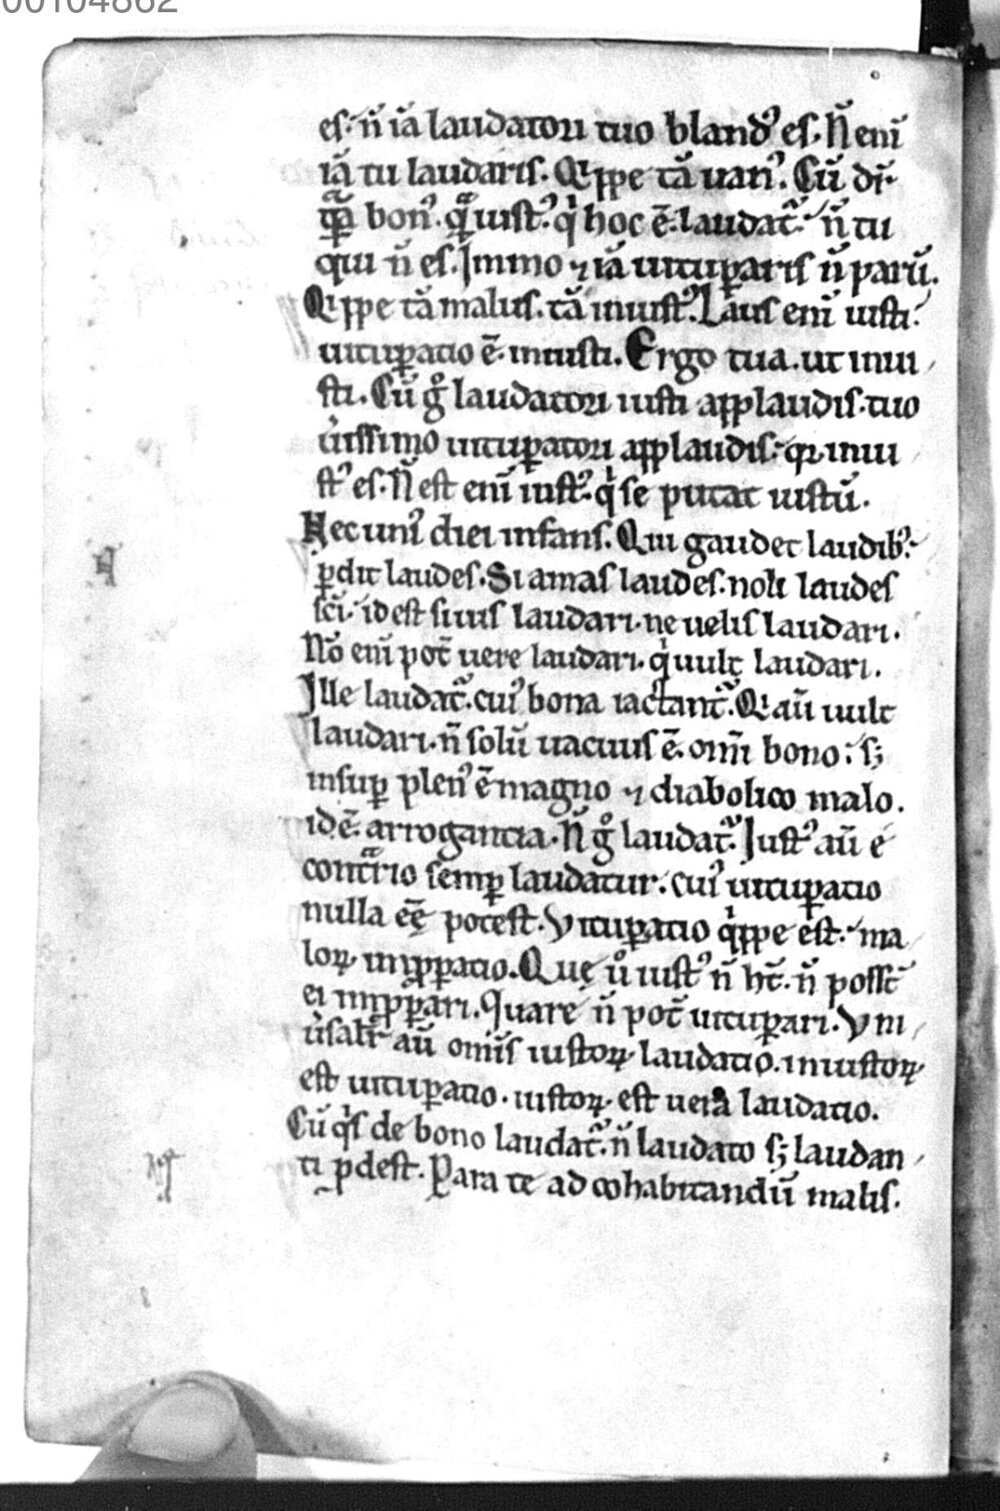 00104862
es. n̄ iā laudatori tuo bland᷒ es. N̄ enī
iā tu laudaris. Q͛ppe tā uan᷒. Cū dr̄.
qͣ̄ bon᷒. qͣ̄ iust᷒. qͥ hoc ē. laudat᷑. n̄ tu
qui n̄ es. Immo ⁊ iā uituꝑaris n̄ parū.
Q͛ppe tā malus. tā iniust᷒. Laus enī iusti.
uituꝑatio ē. iniusti. Ergo tua. ut iniu
sti. Cū gͦ laudatori iusti applaudis. tuo
uͥissimo uituꝑatori applaudis. qꝛ iniu
st᷒ es. N̄ est enī iust᷒. qͥ se putat iustū.
Hec uni᷒ diei infans. Qui gaudet laudib᷒.
ꝑdit laudes. Si amas laudes. noli laudes
sci̅. id est siuis laudari. ne uelis laudari.
Nō enī pot̄ uere laudari. qͥ uult laudari.
Ille laudat᷑. cui᷒ bona iactant᷑. Qͥ aū uult
laudari. n̄ solū uacuus ē. omī bono. sꝫ
insuꝑ plen᷒ ē magno ⁊ diabolico malo.
id ē. arrogantia. N̄ gͦ laudat᷑. Iust᷒ aū e
contͣrio semꝑ laudatur. cui᷒ uituꝑatio
nulla eę̄ potest. Vituꝑatio qͥppe est. ma
loꝝ imꝓꝑatio. Que̜ uͦ iust᷒ n̄ ht̄. n̄ posst̄
ei imꝓꝑari. Quare n̄ pot̄ uituꝑari. Vni
ūsalit̄ aū omīs iustoꝝ laudatio. iniustoꝝ
est uituꝑatio. iustoꝝ est uera laudatio.
Cū qͥs de bono laudat᷑. n̄ laudato sꝫ laudan
ti ꝓdest. Para te ad cohabitandū malis.